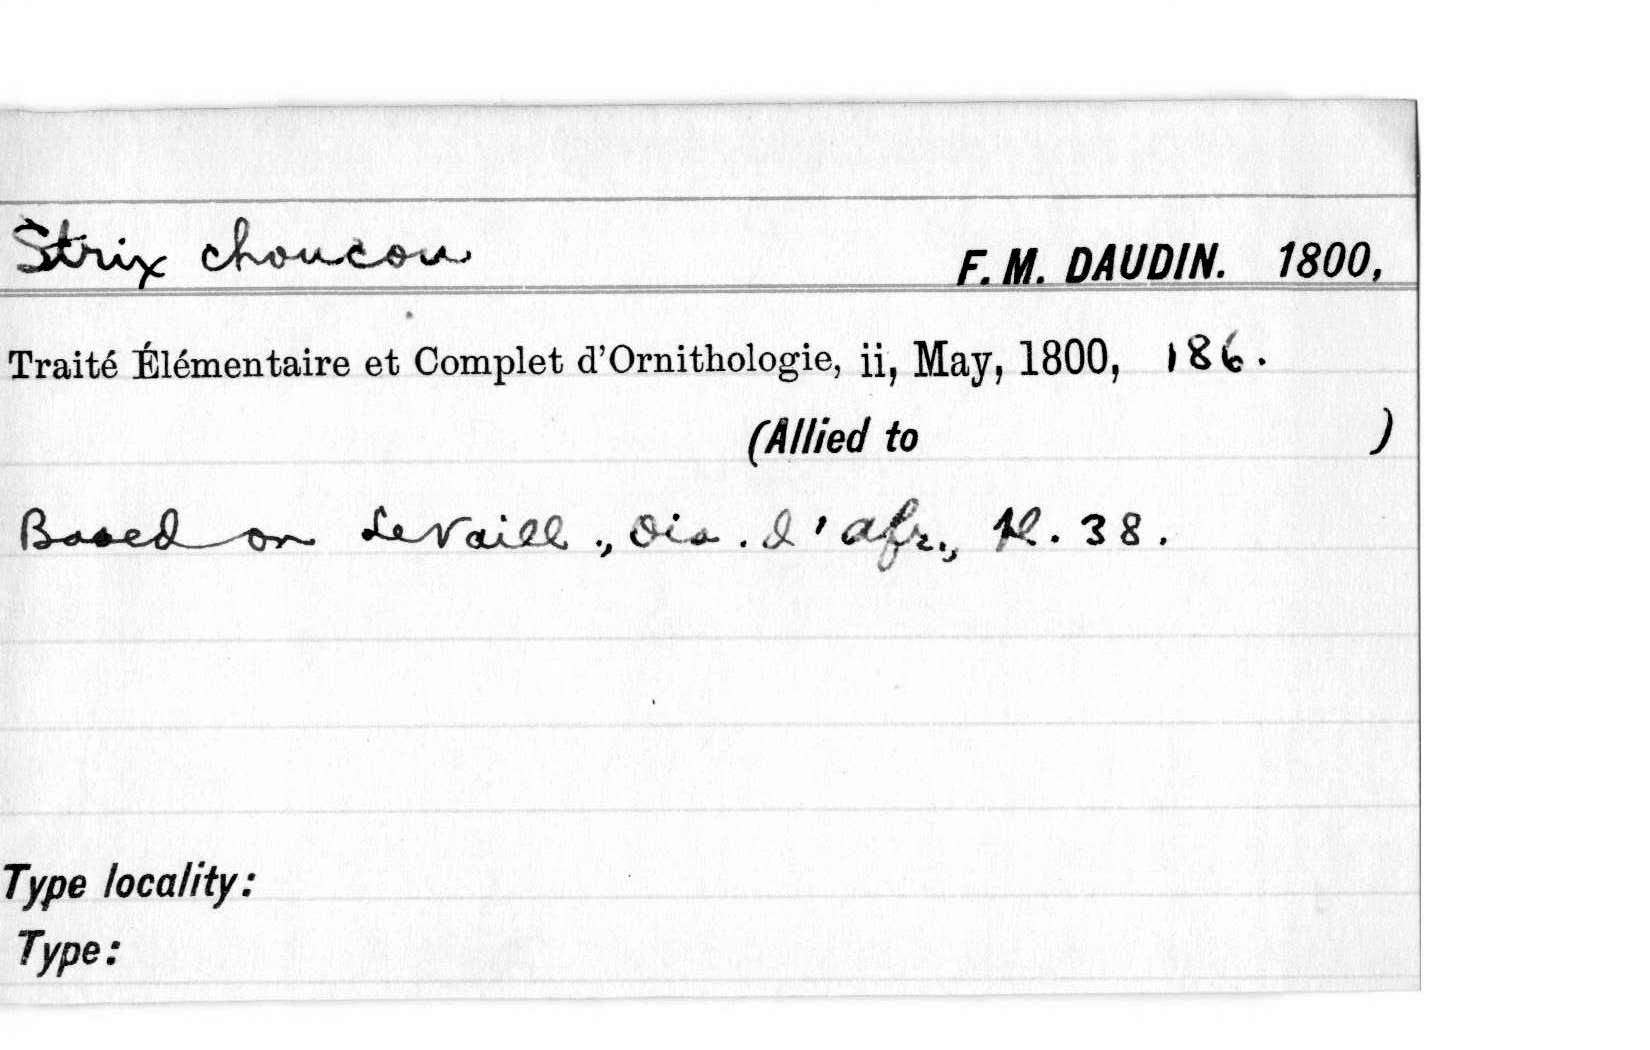 Strix choucou F. M. DAUDIN. 1800,
Traité Élémentaire et Complet d'Ornithologie, ii, May, 1800, 186.
(Allied to )
Based on LeVaill., Ois. d'Afr., Pl. 38.
Type locality:
Type: